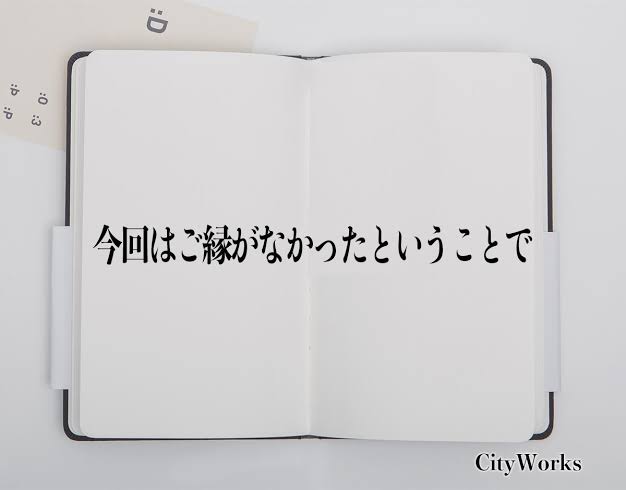 :D
:O :3
:P :P
今回はご縁がなかったということで
CityWorks